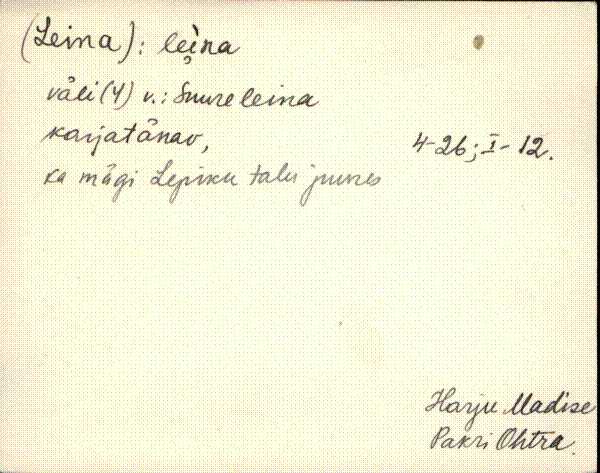 (Leina): leìna
väli (4) v.: Suureleina
karjatänav, 4-26; I-12.
ka mägi Lepiku talu juures
Harju Madise
Pakri Ohtra.